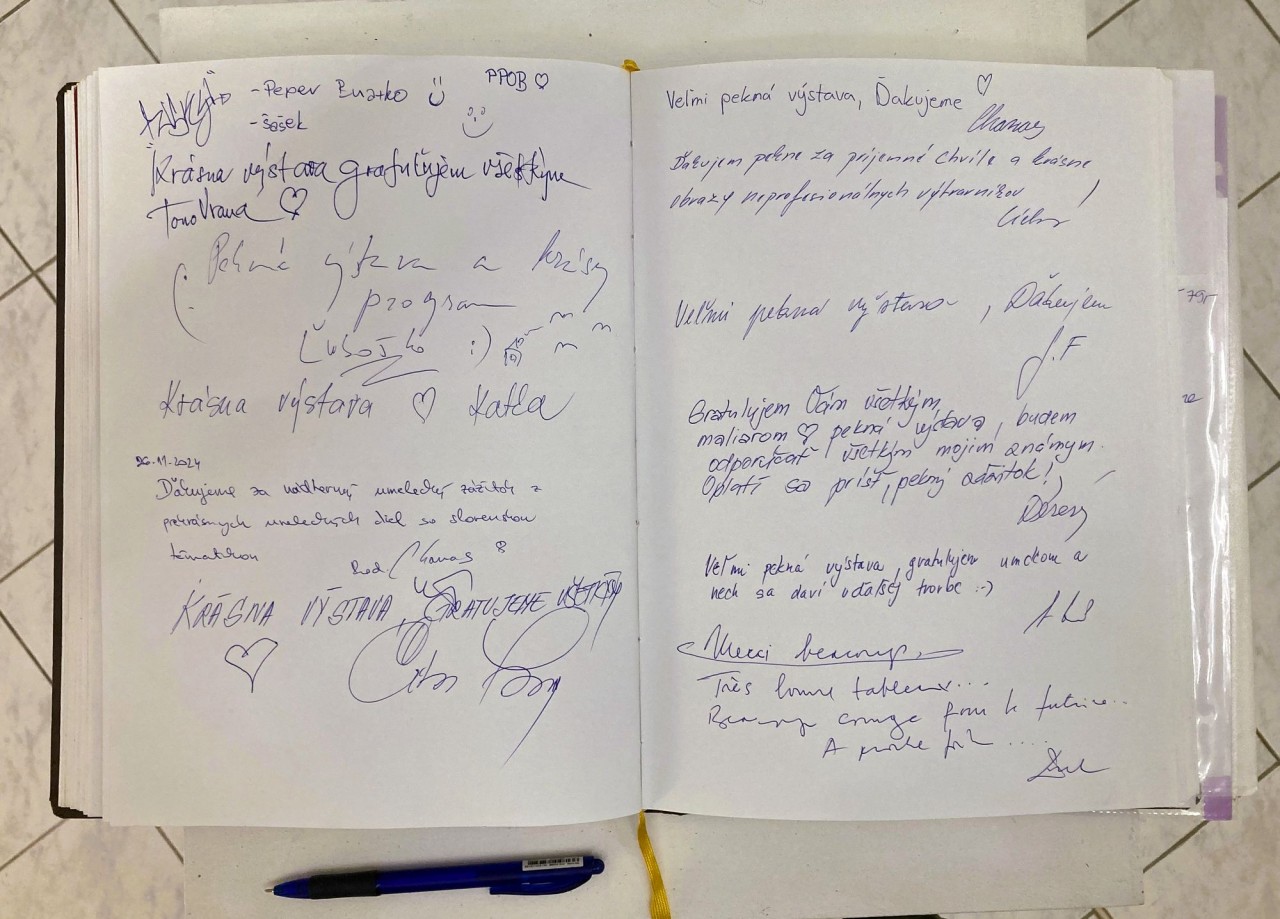 - Peper Buatko
PPOB
- šašek
Krásna výstava gratulujem všetkým
Tono Vrana
Pekná výstava a krásny
program
Ľuboško :)
Krásna výstava Katka
26.11.2024
Ďakujeme za nádherný umelecký zážitok z
prekrásnych umeleckých diel so slovenskou
tématikou
KRÁSNA VÝSTAVA, GRATUJEME VŠETKÝM
Veľmi pekná výstava, Ďakujeme
Ďakujem pekne za príjemné chvíle a krásne
obrazy neprofesionálnych výtvarníkov
Veľmi pekná výstava, Ďakujem
J.F
Gratulujem Vám všetkým
maliarom pekná výstava, budem
odporúčať všetkým mojim známym.
Oplatí sa prísť, pekný zážitok!
Veľmi pekná výstava, gratulujem umelcom a
nech sa darí v ďalšej tvorbe :-)
Merci beaucoup
Très bonne tableaux...